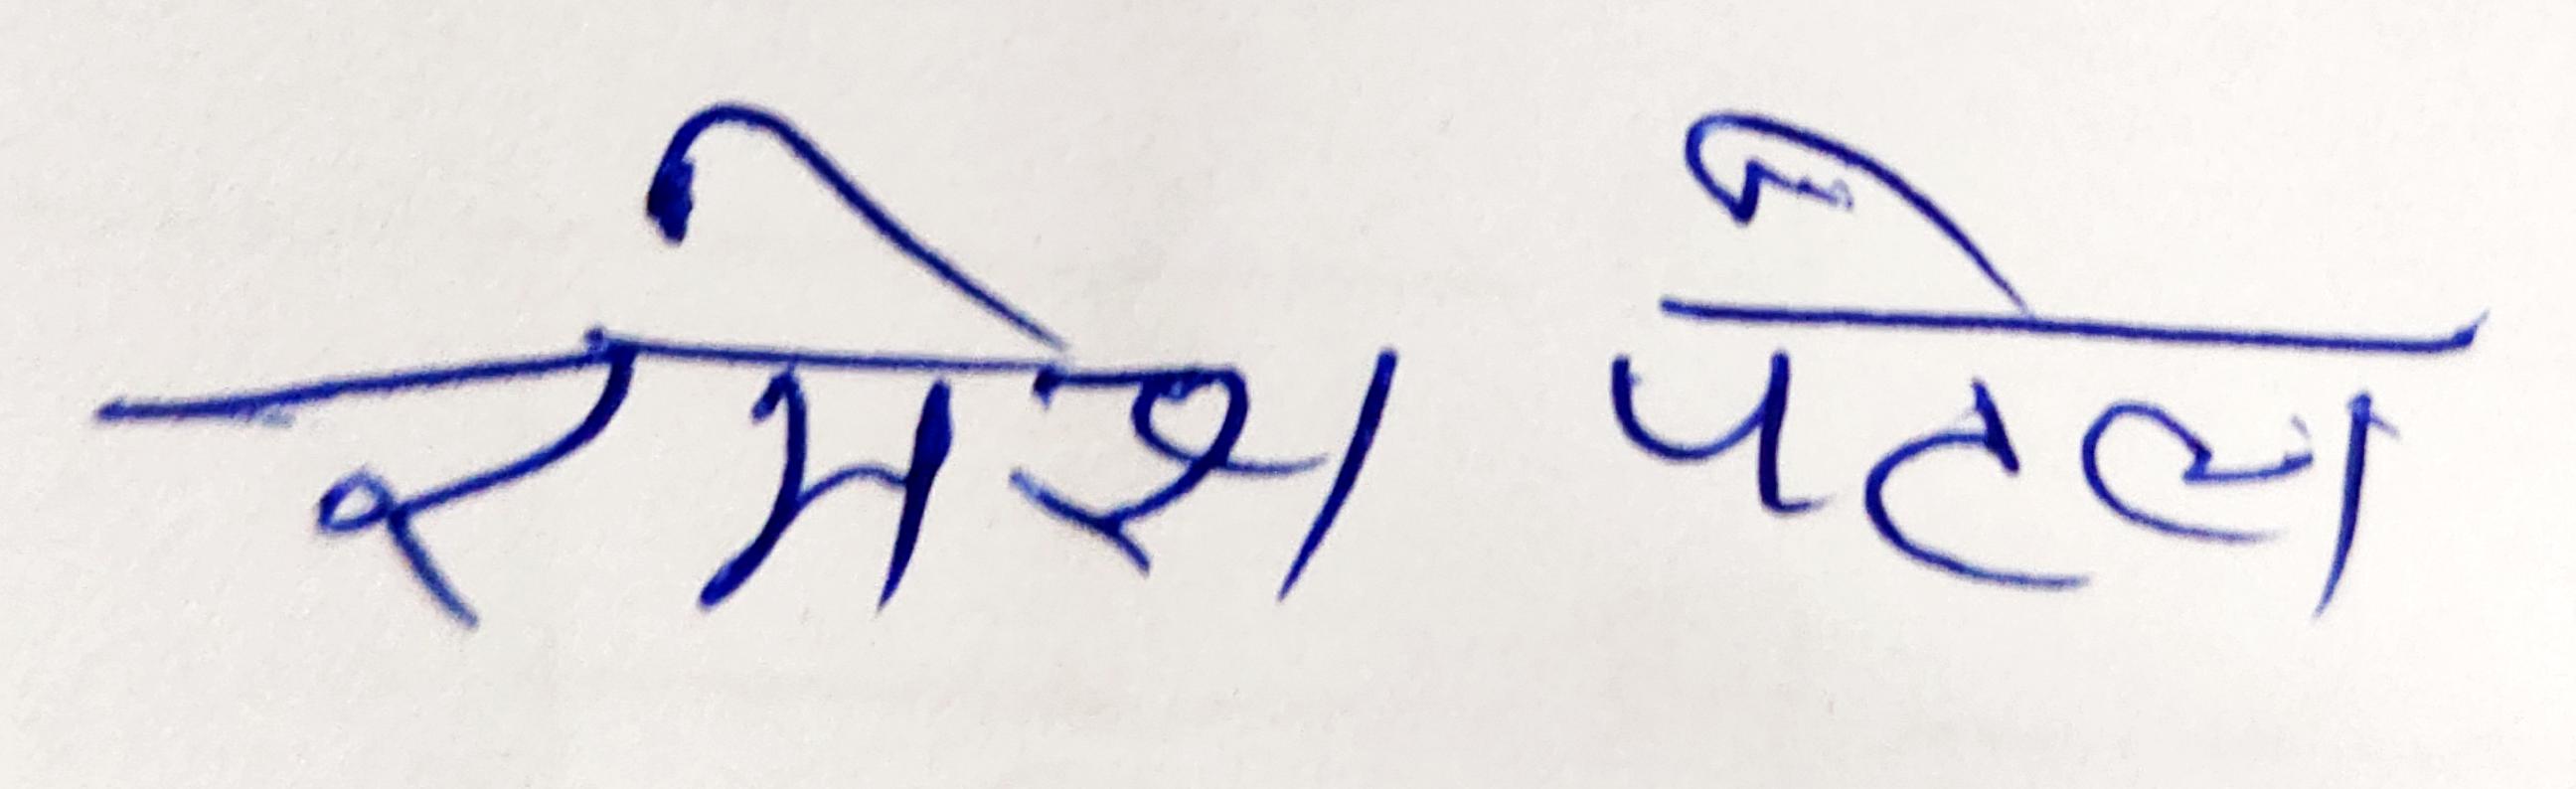 रमेश पटेल